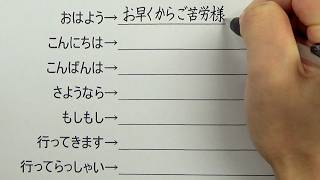 おはよう→お早くからご苦労様
こんにちは→
こんばんは→
さようなら→
もしもし→
行ってきます→
行ってらっしゃい→